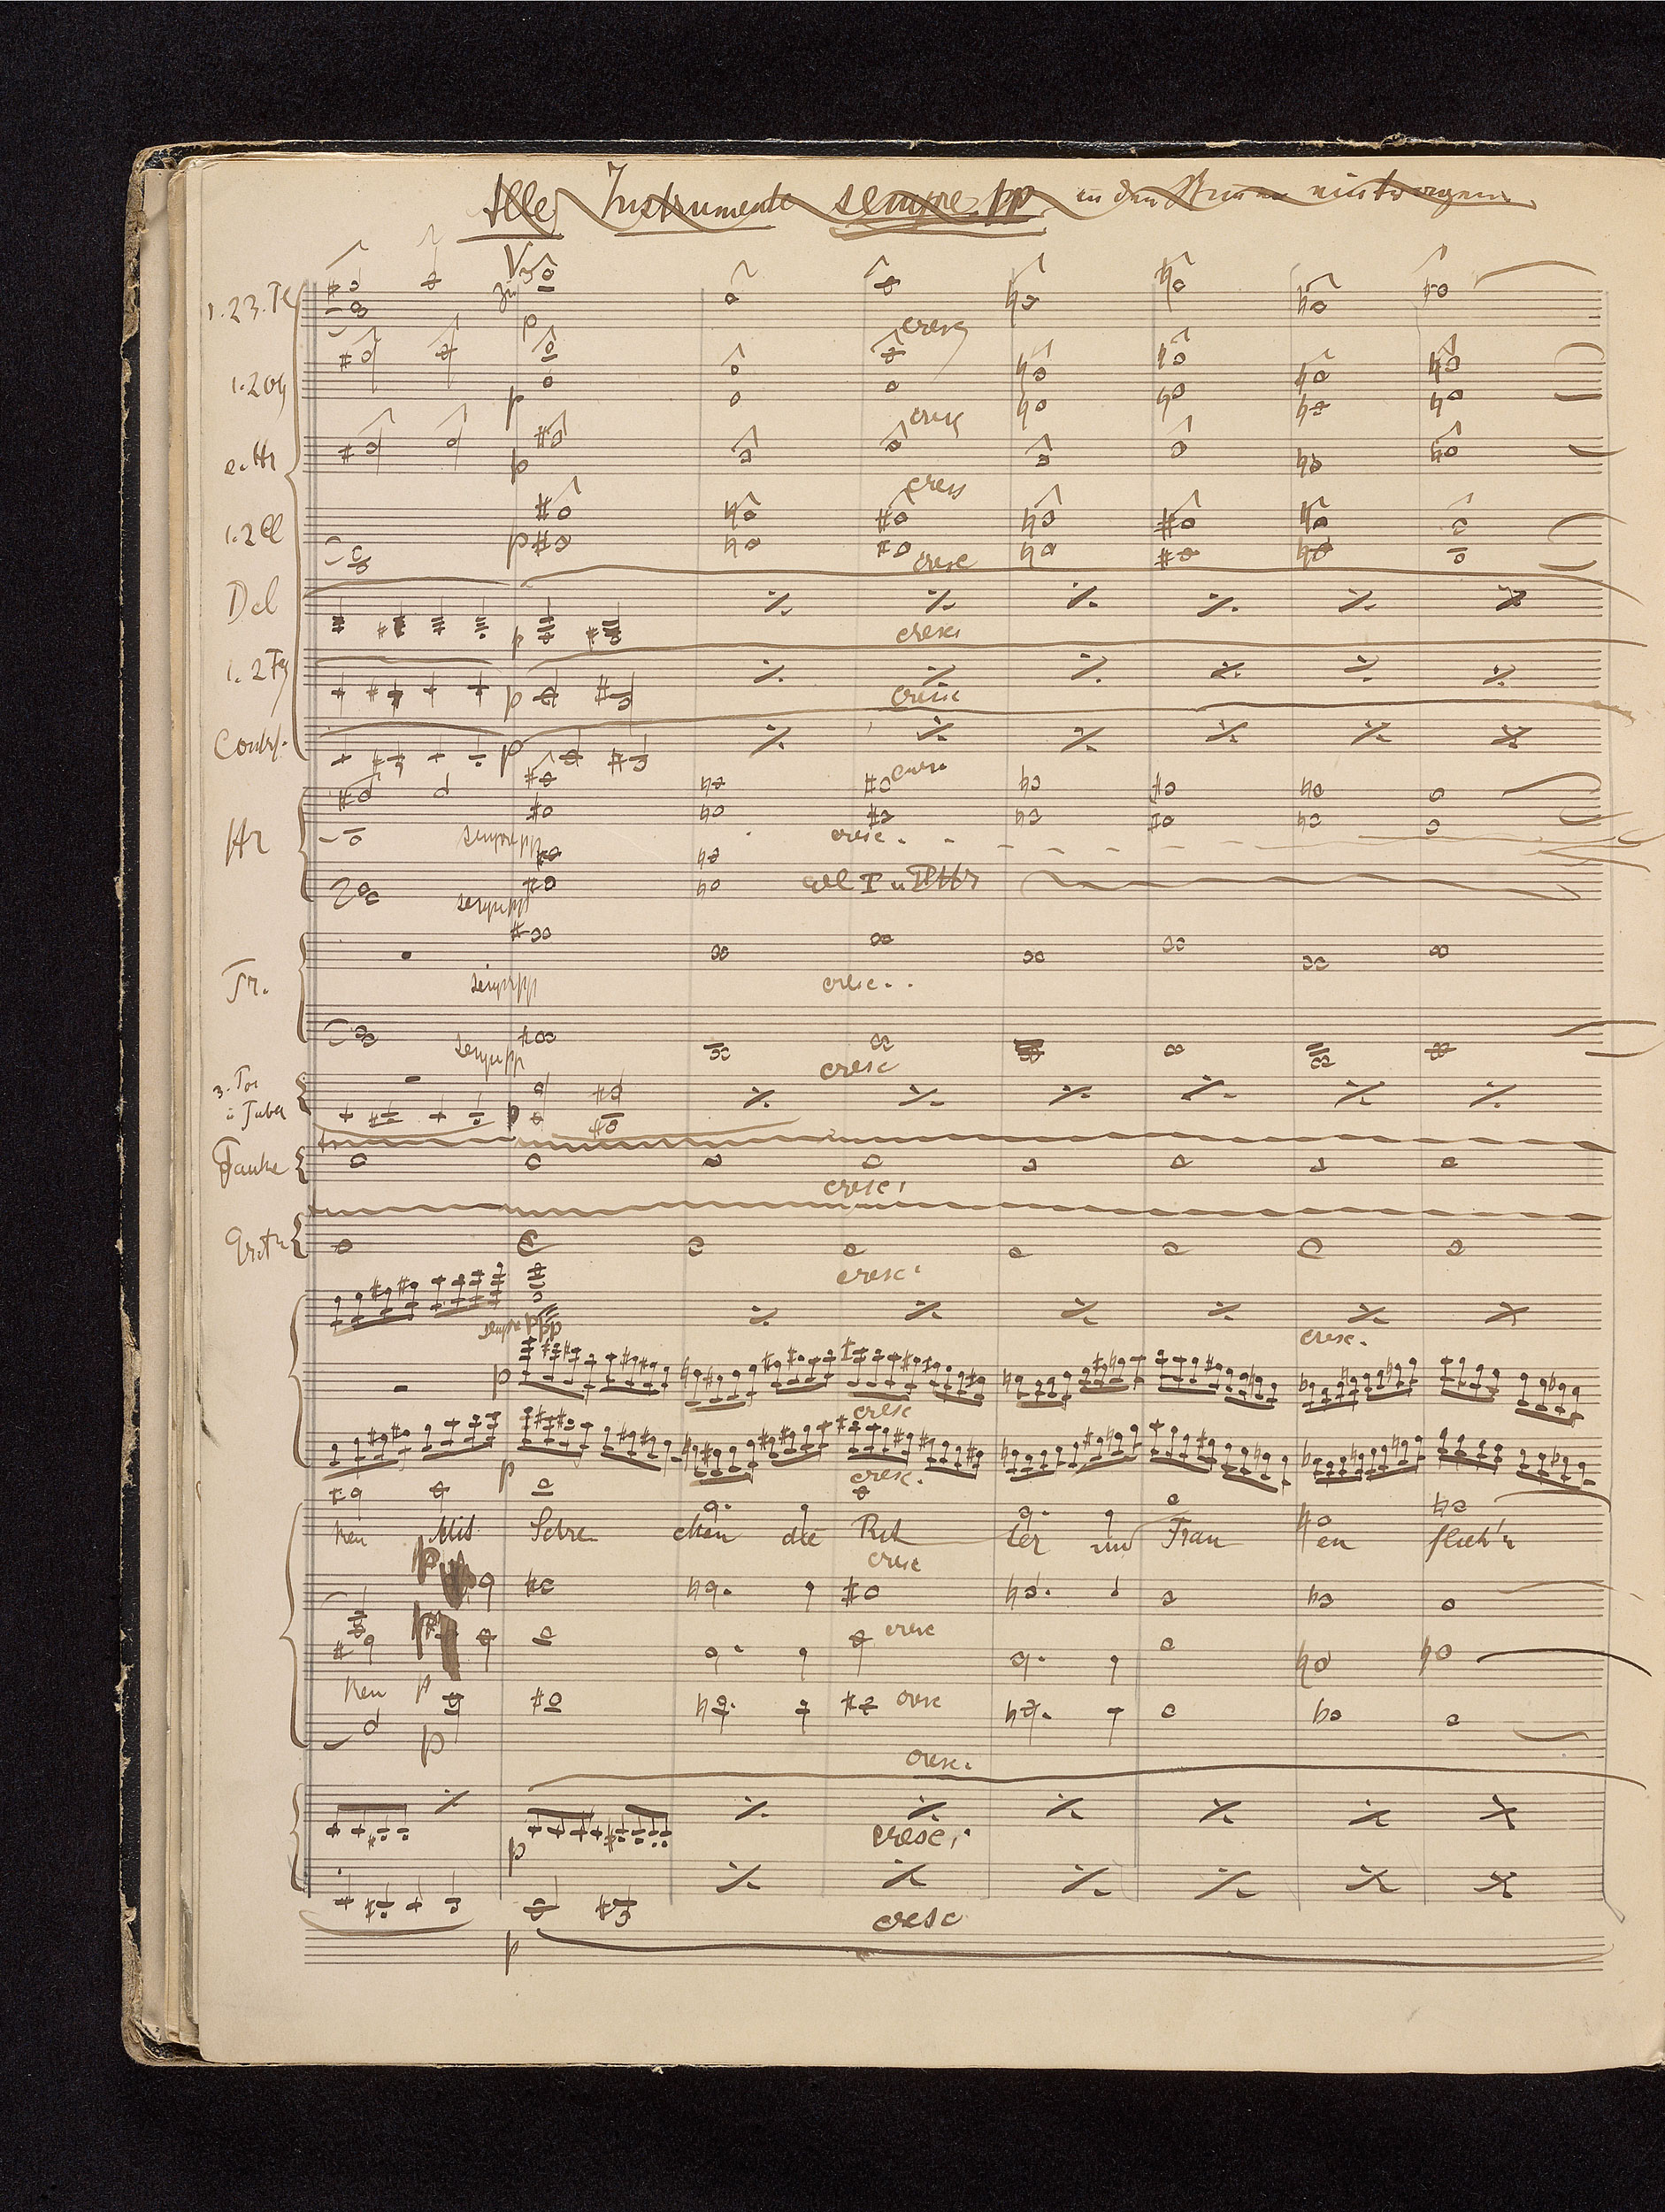 Alle Instrumente sempre pp in den Stimmen eintragen
1. 2 3. Fl
zu 3
p
cresc
1. 2 Ob
p
cresc
e. Hr
p
cresc
1. 2 Cl
p
cresc
Bcl
p
cresc.
1. 2 Fg
p
cresc
Contrf.
p
cresc
Hr
sempre pp
cresc.
sempre pp
col I u II Hr
Tr.
sempre pp
cresc.
sempre pp
cresc
3. Pos
u Tuba
p
Pauke
cresc.
cresc.
sempre ppp
cresc.
p
cresc
p
cresc.
ken Mit Schre cken die Rit ter und Frau en flieh'n
p
cresc
cresc
ken
p
cresc
p
cresc.
p
cresc.
cresc
p